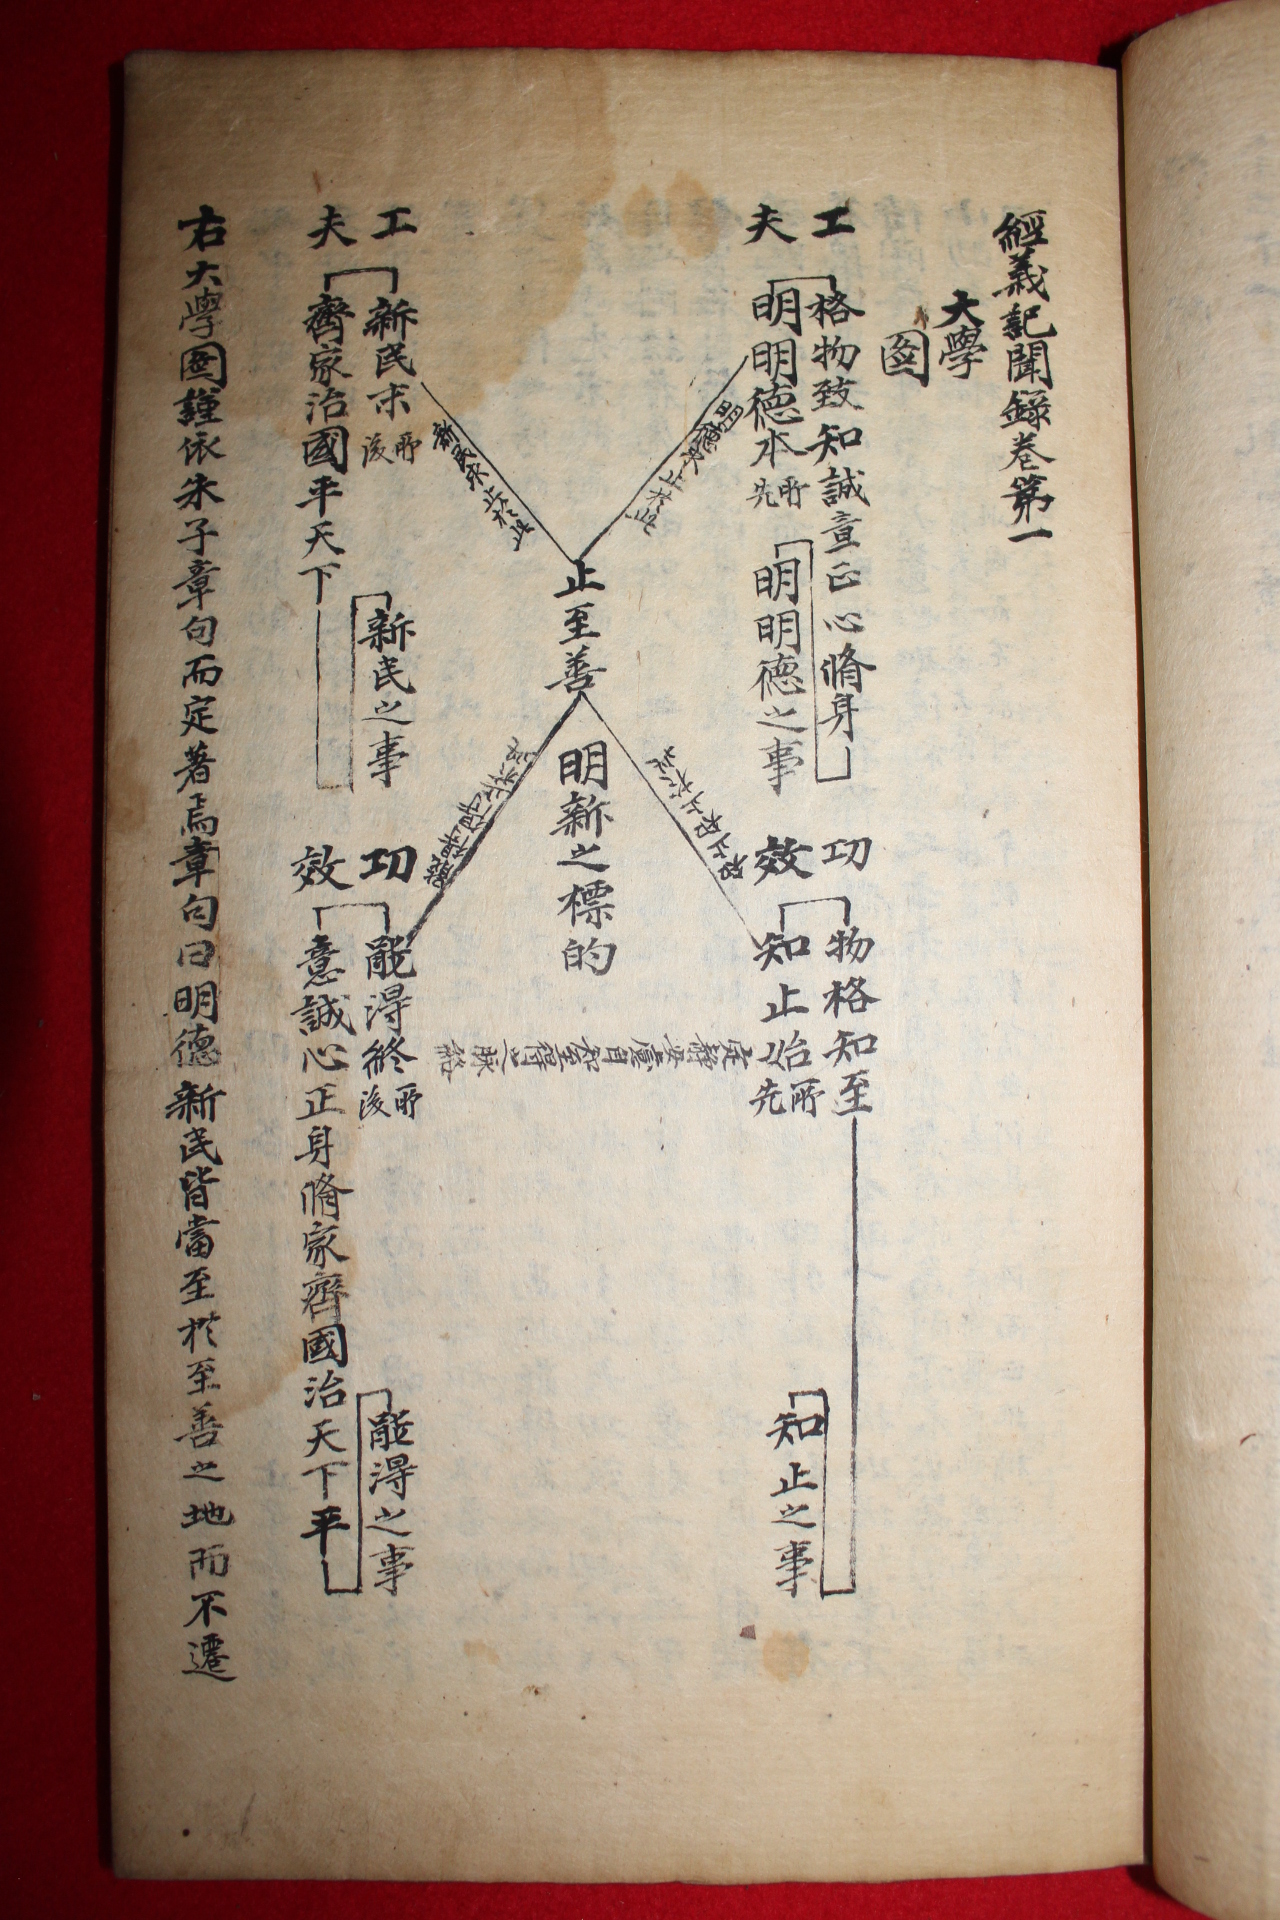 經義記聞錄卷第一
大學
圖
工夫
格物致知誠意正心脩身
明明德本所先
明明德之事
功效
物格知至
知止始所先
知止之事
明德求止於此
止至善
明新之標的
新民求止於此
知止知止於此
定靜安慮自知至得之脉絡
工夫
新民末所後
齊家治國平天下
新民之事
功效
能得終所後
意誠心正身脩家齊國治天下平
能得之事
右大學圖謹依朱子章句而定著焉章句曰明德新民皆當至於至善之地而不遷